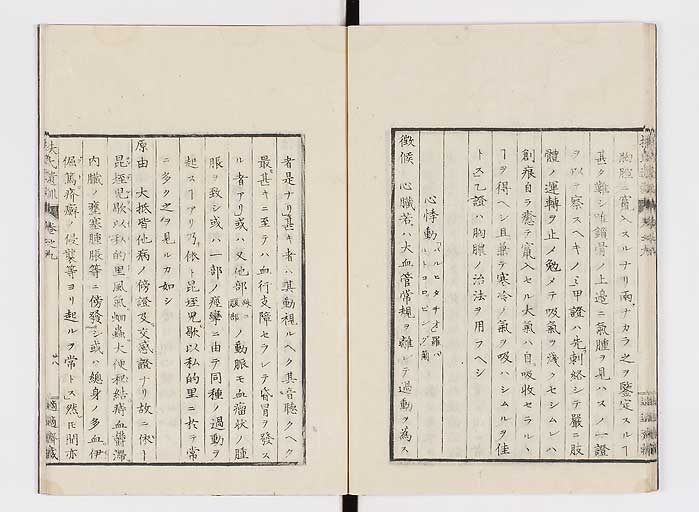 胸腔ニ竄入スルナリ兩ナカラ之ヲ鑒定スルー
甚タ難シ唯鎖骨ノ上邉ニ氣腫ヲ見ハスノ一證
ヲ以テ察スヘキノミ甲證ハ先刺絡シテ嚴ニ肢
體ノ運轉ヲ止メ勉メテ吸氣ヲ淺クセシムレハ
創痕自ラ癒テ竄入セル大氣ハ自吸收セラルヽ
ヿヲ得ヘシ且兼テ寒冷ノ氣ヲ吸ハシムルヲ佳
トス乙證ハ胸膿ノ治法ヲ用フヘシ
心悸動
徴候 心臓若ハ大血管常規ヲ離レテ過動ヲ為ス
者是ナリ甚キ者ハ其動視ルヘク其音聴クヘク
最甚キニ至テハ血行支障セラレテ昏冒ヲ發ス
ル者アリ或ハ又他部ノ動脈モ血瘤狀ノ腫
脹ヲ致シ或ハ一部ノ痙攣ニ由テ同種ノ過動ヲ
起スヿアリ乃依卜昆垤児歇以私的里ニ於テ常
ニ多ク之ヲ見ルカ如シ
原由 大抵皆他病ノ傍證及交感證ナリ故ニ依卜
昆垤児歇以私的里風氣蛔蟲大便秘結痔血鬱滞
内臓ノ壅塞腫脹等ニ傍發シ或ハ總身ノ多血伊
倔篤疥癬ノ侵襲等ヨリ起ルヲ常トス然圧間亦